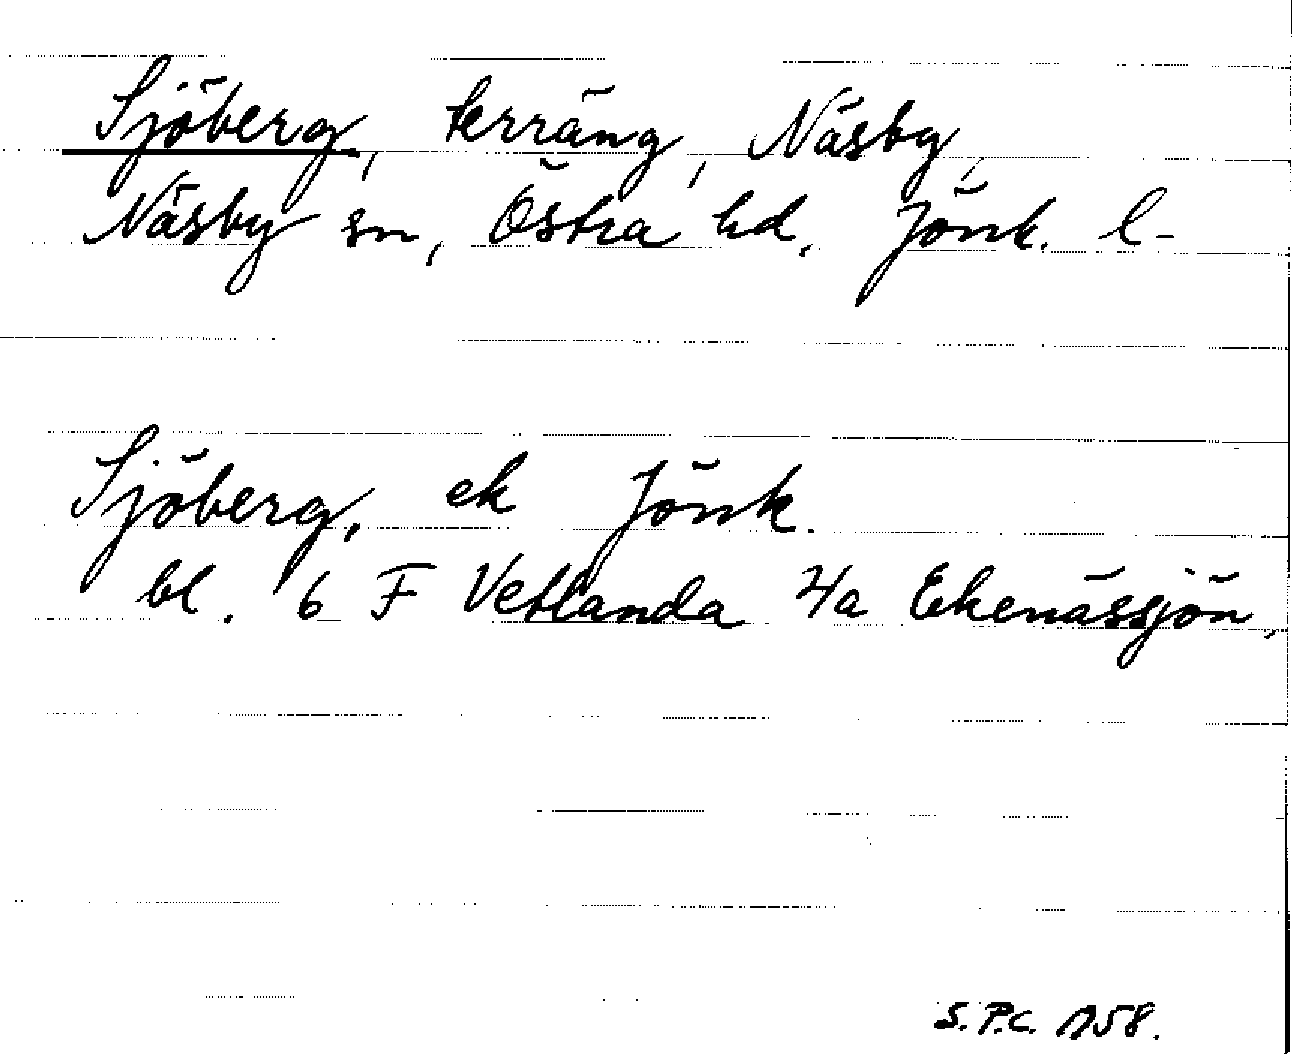 Sjöberg, terräng, Näsby,
Näsby sn, Östra hd. Jönk. l-
Sjöberg, ek Jönk.
bl. 6 F Vetlanda 4a Ekenässjön,
S.P.C. 1958.